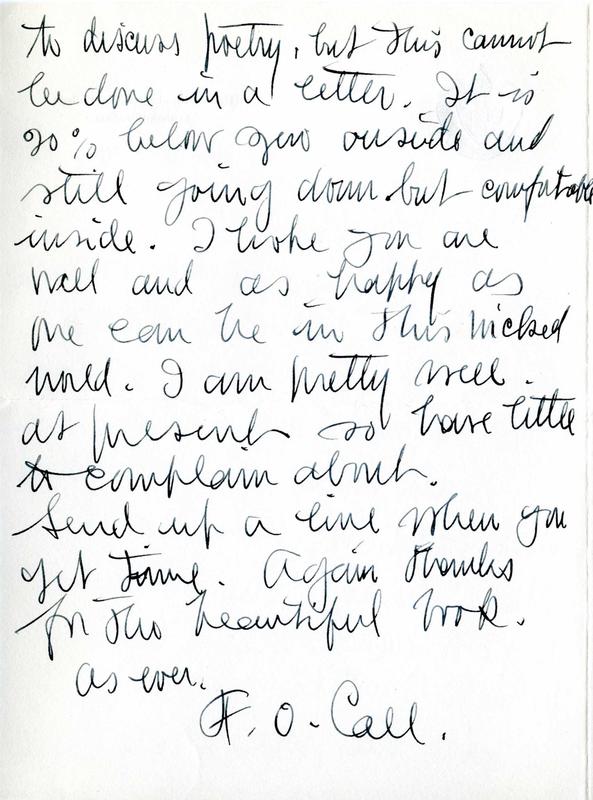 to discuss poetry, but this cannot
be done in a letter. It is
20% below zero outside and
still going down but comfortable
inside. I hope you are
well and as happy as
one can be in this wicked
world. I am pretty well.
at present so have little
to complain about.
Send up a line when you
get time. Again thanks
for the beautiful book.
as ever.
F. O. Call.